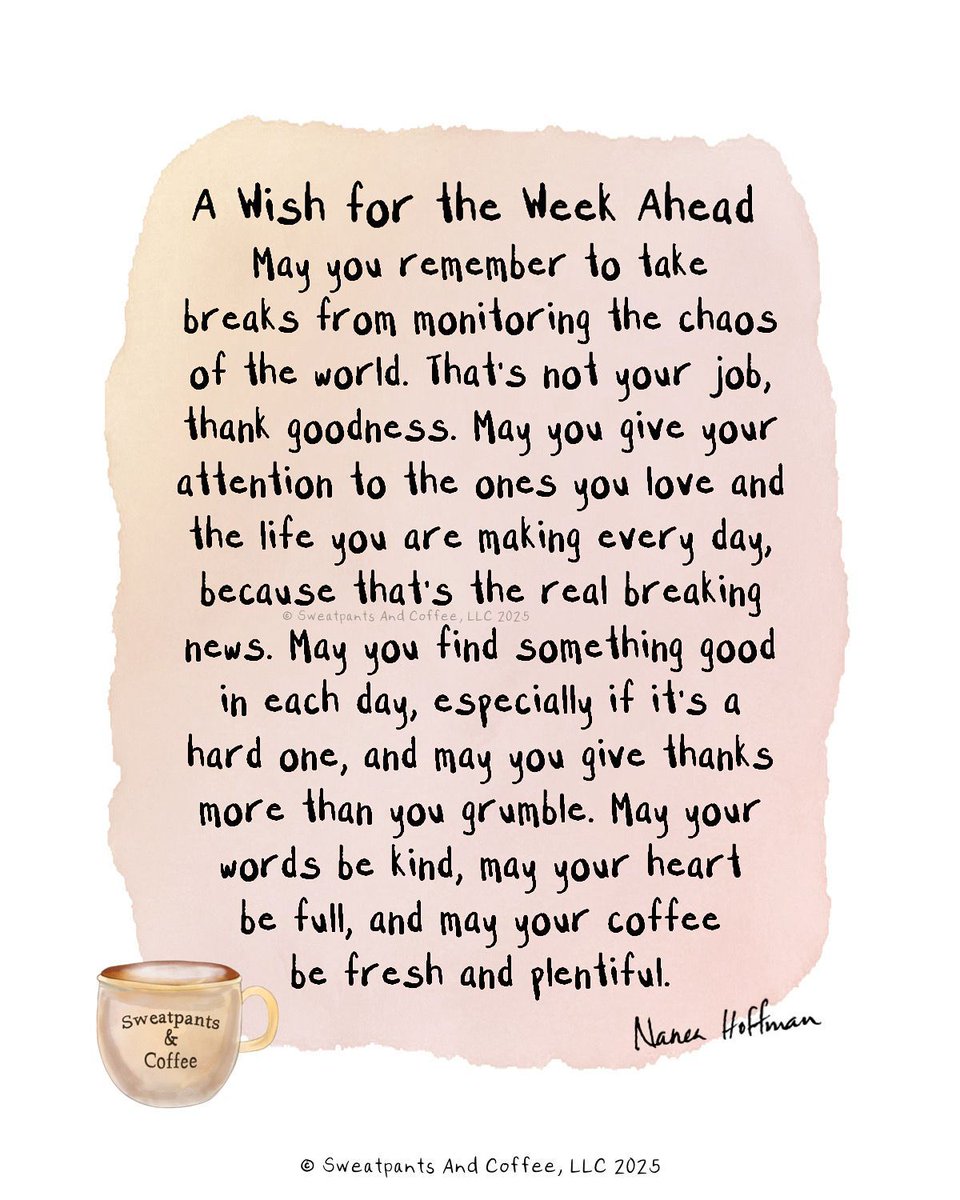 A Wish for the Week Ahead
May you remember to take
breaks from monitoring the chaos
of the world. That's not your job,
thank goodness. May you give your
attention to the ones you love and
the life you are making every day,
because that's the real breaking
© Sweatpants And Coffee, LLC 2025
news. May you find something good
in each day, especially if it's a
hard one, and may you give thanks
more than you grumble. May your
words be kind, may your heart
be full, and may your coffee
be fresh and plentiful.
Nanea Hoffman
Sweatpants
&
Coffee
© Sweatpants And Coffee, LLC 2025